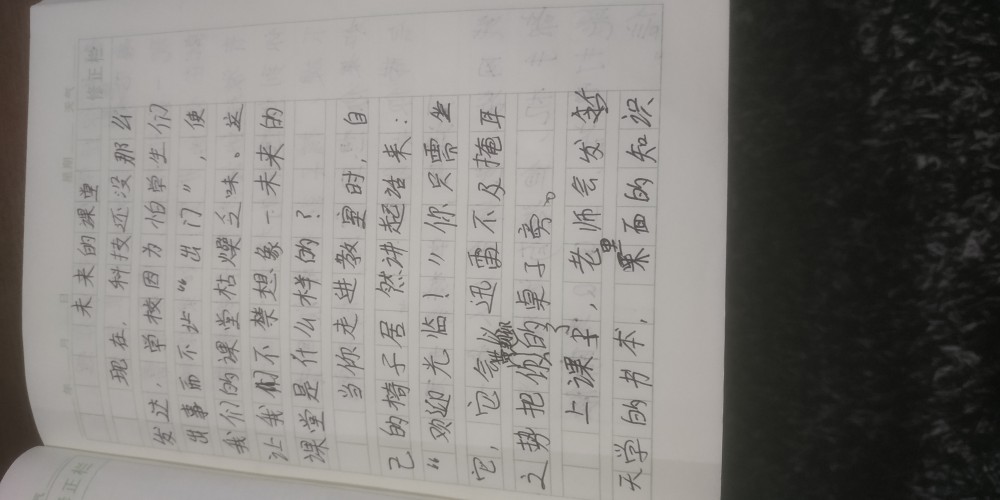 修正栏
未来的课堂
现在，科技还没那么
发达，学校因为怕学生们
出事而不让“出门”，使
我们的课堂枯燥乏味。这
让我们不禁想象一未来的
课堂是什么样的？
当你走进教室时，自
己的椅子居然讲起话来：
“欢迎光临！”你只需坐
它，它会以迅雷不及掩耳
之势把你的桌子旁。
上课了，老师会发新
天学的书本，里面的知识